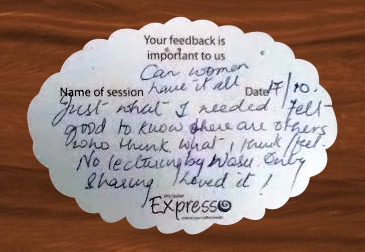 Your feedback is
important to us
Can women
Name of session have it all Date 17/10.
Just what I needed. Felt
good to know there are others
who think what I think/feel.
No lecturing by Wasu. Only
Sharing. Loved it!
Expresso